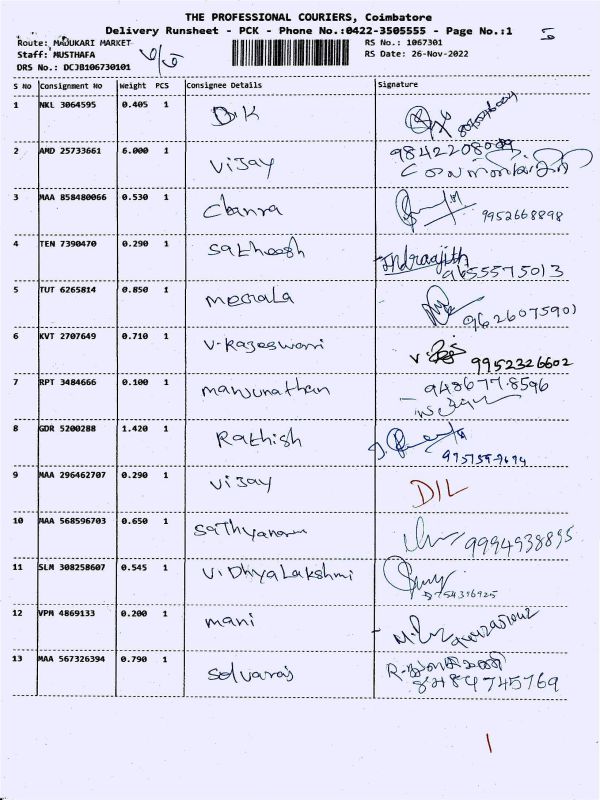 THE PROFESSIONAL COURIERS, Coimbatore
Delivery Runsheet - PCK - Phone No.:0422-3505555 - Page No.:1
Route: MADUKARI MARKET RS No.: 1067301
Staff: MUSTHAFA RS Date: 26-Nov-2022
DRS No.: DCJB106730101
S No Consignment No Weight PCS Consignee Details Signature
1 NKL 3064595 0.405 1 D.K
2 AMD 25733661 6.000 1 Vijay 9842208089
3 MAA 858480066 0.530 1 Channa 9952668898
4 TEN 7390470 0.290 1 Satheesh Indraajith
9655575013
5 TUT 6265814 0.850 1 Meerala 9626075901
6 KVT 2707649 0.710 1 V. Rajeswari 9952326602
7 RPT 3484666 0.100 1 Manjunathan 948677.8596
8 GDR 5200288 1.420 1 Rathish
9 MAA 296462707 0.290 1 Vijay DIL
10 MAA 568596703 0.650 1 9994938895
11 SLM 308258607 0.545 1 Vidhyalakshmi
12 VPM 4869133 0.200 1 mani
13 MAA 567326394 0.790 1 Selvaraj